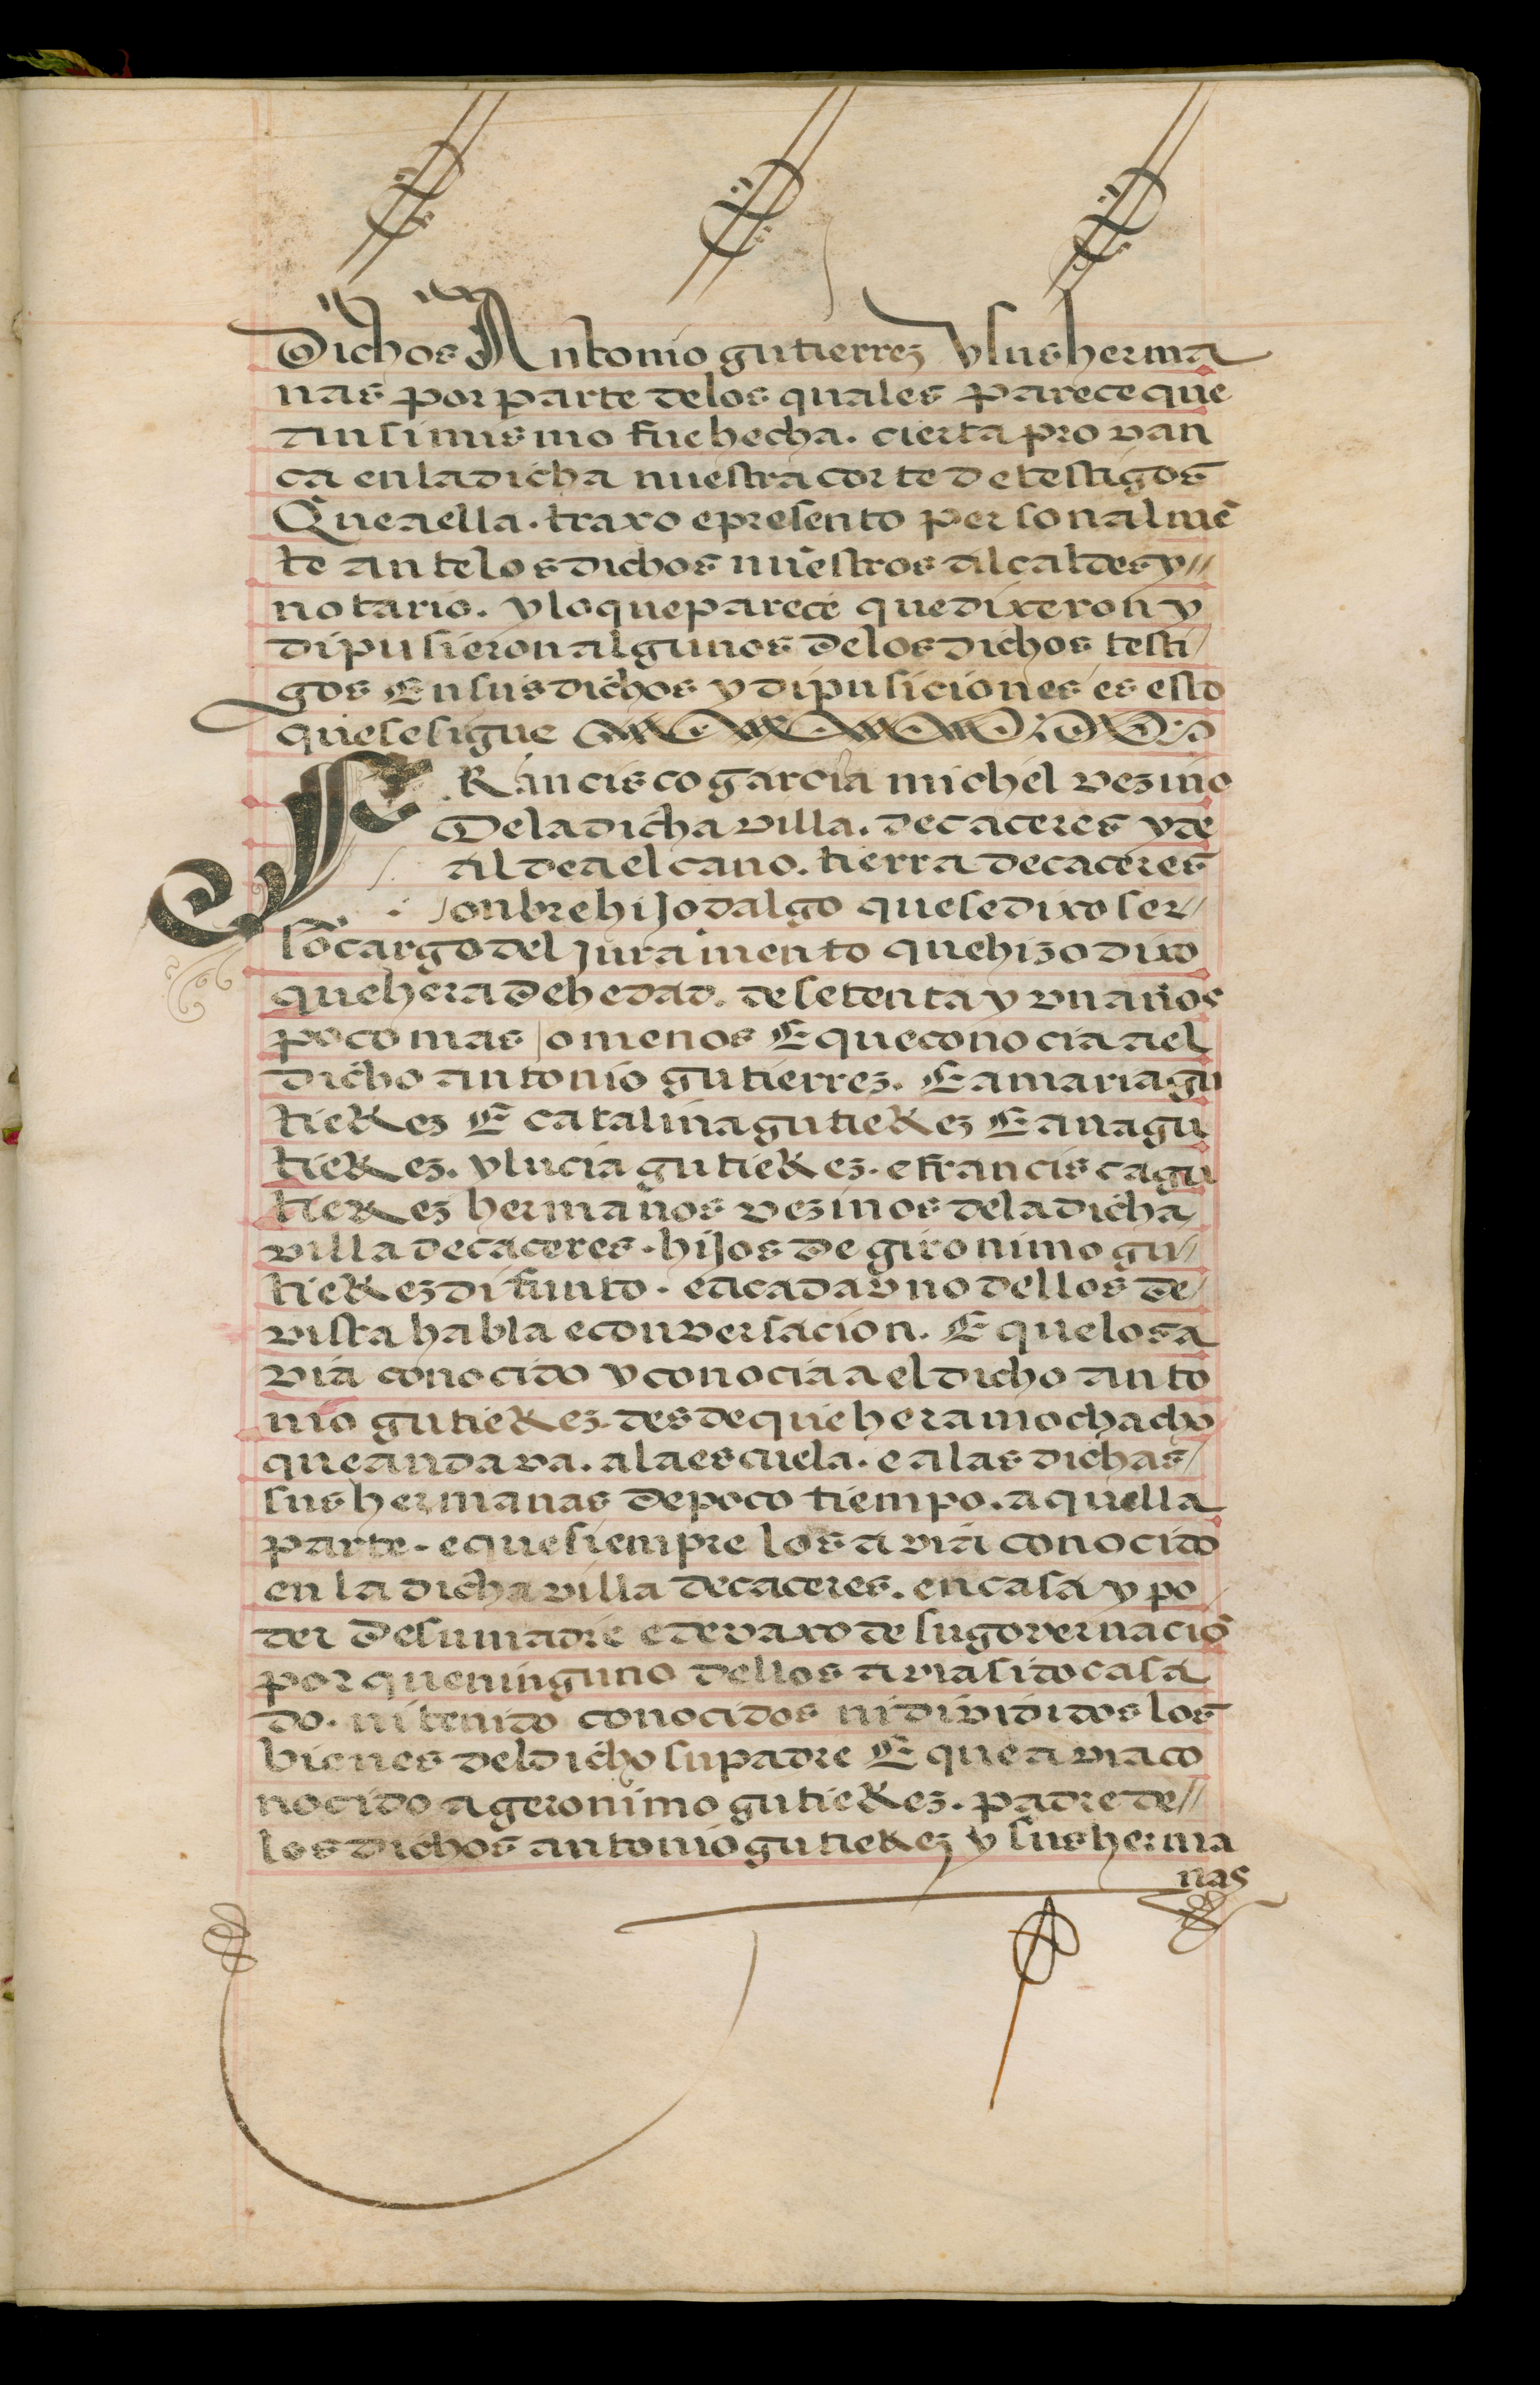 Dichos Antonio gutierrez y sus herma
nas por parte delos quales parece que
ansimismo fue hecha. cierta provan
ca en la dicha nuestra corte de testigos
Que a ella. traxo e presento personalmē
te ante los dichos nuestros alcaldes y//
notario. y lo que parece que dixeron y
dipusieron algunos de los dichos testi/
gos En sus dichos y dipusiciones es esto
que se sigue
FRancisco garcia michel vezino
De la dicha villa. de caceres y de
aldea el cano. tierra de caceres
onbre hijodalgo que se dixo ser/
so cargo del juramento que hizo dixo
que hera de hedad. de setenta y un años
poco mas o menos E que conocia a el
dicho antonio gutierrez. E a maria gu
tieRez E catalina gutieRez E ana gu
tieRez. y lucia gutieRez. e francisca gu
tieRez hermanos vezinos de la dicha/
villa de caceres. hijos de gironimo gu//
tieRez difunto. e a cada uno dellos de/
vista habla e conversacion. E que los a
via conocido y conocia a el dicho anto
nio gutieRez. desde que hera mochacho
que andava. a la escuela. e a las dichas/
sus hermanas de poco tiempo. a quella
parte. e que siempre los avia conocido
en la dicha villa de caceres. en casa y po
der de su madre e devaxo de su governaciō
por que ninguno dellos avia sido casa
do. ni tenido conocidos ni divididos los
bienes del dicho su padre E que avia co
nocido a geronimo gutieRez. padre de//
los dichos antonio gutieRez y sus herma
nas